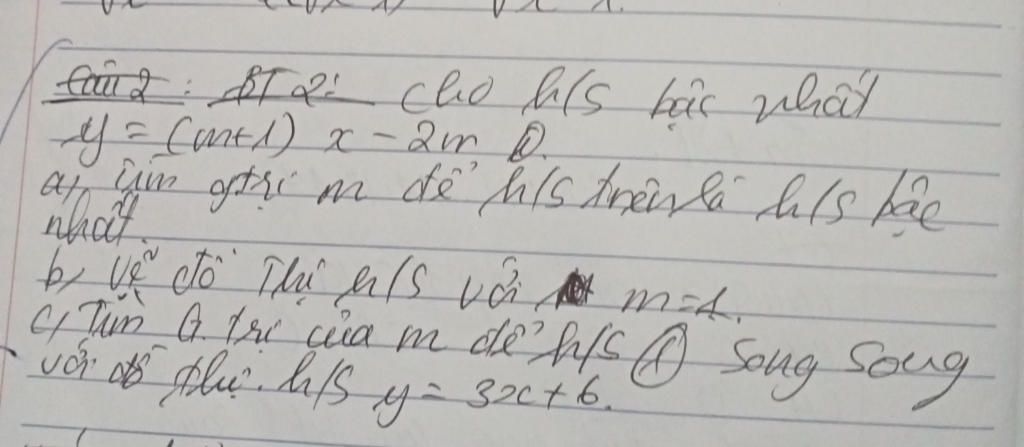 Câu 2: BT 2: cho h/s bậc nhất
y = (m+1) x - 2m ①.
a, Tìm gtrị m để h/s trên là h/s bậc
nhất.
b, Vẽ đồ Thị h/s với m=1.
c, Tìm G.trị của m để h/s ① song song
với đồ thị. h/s y = 3x+6.